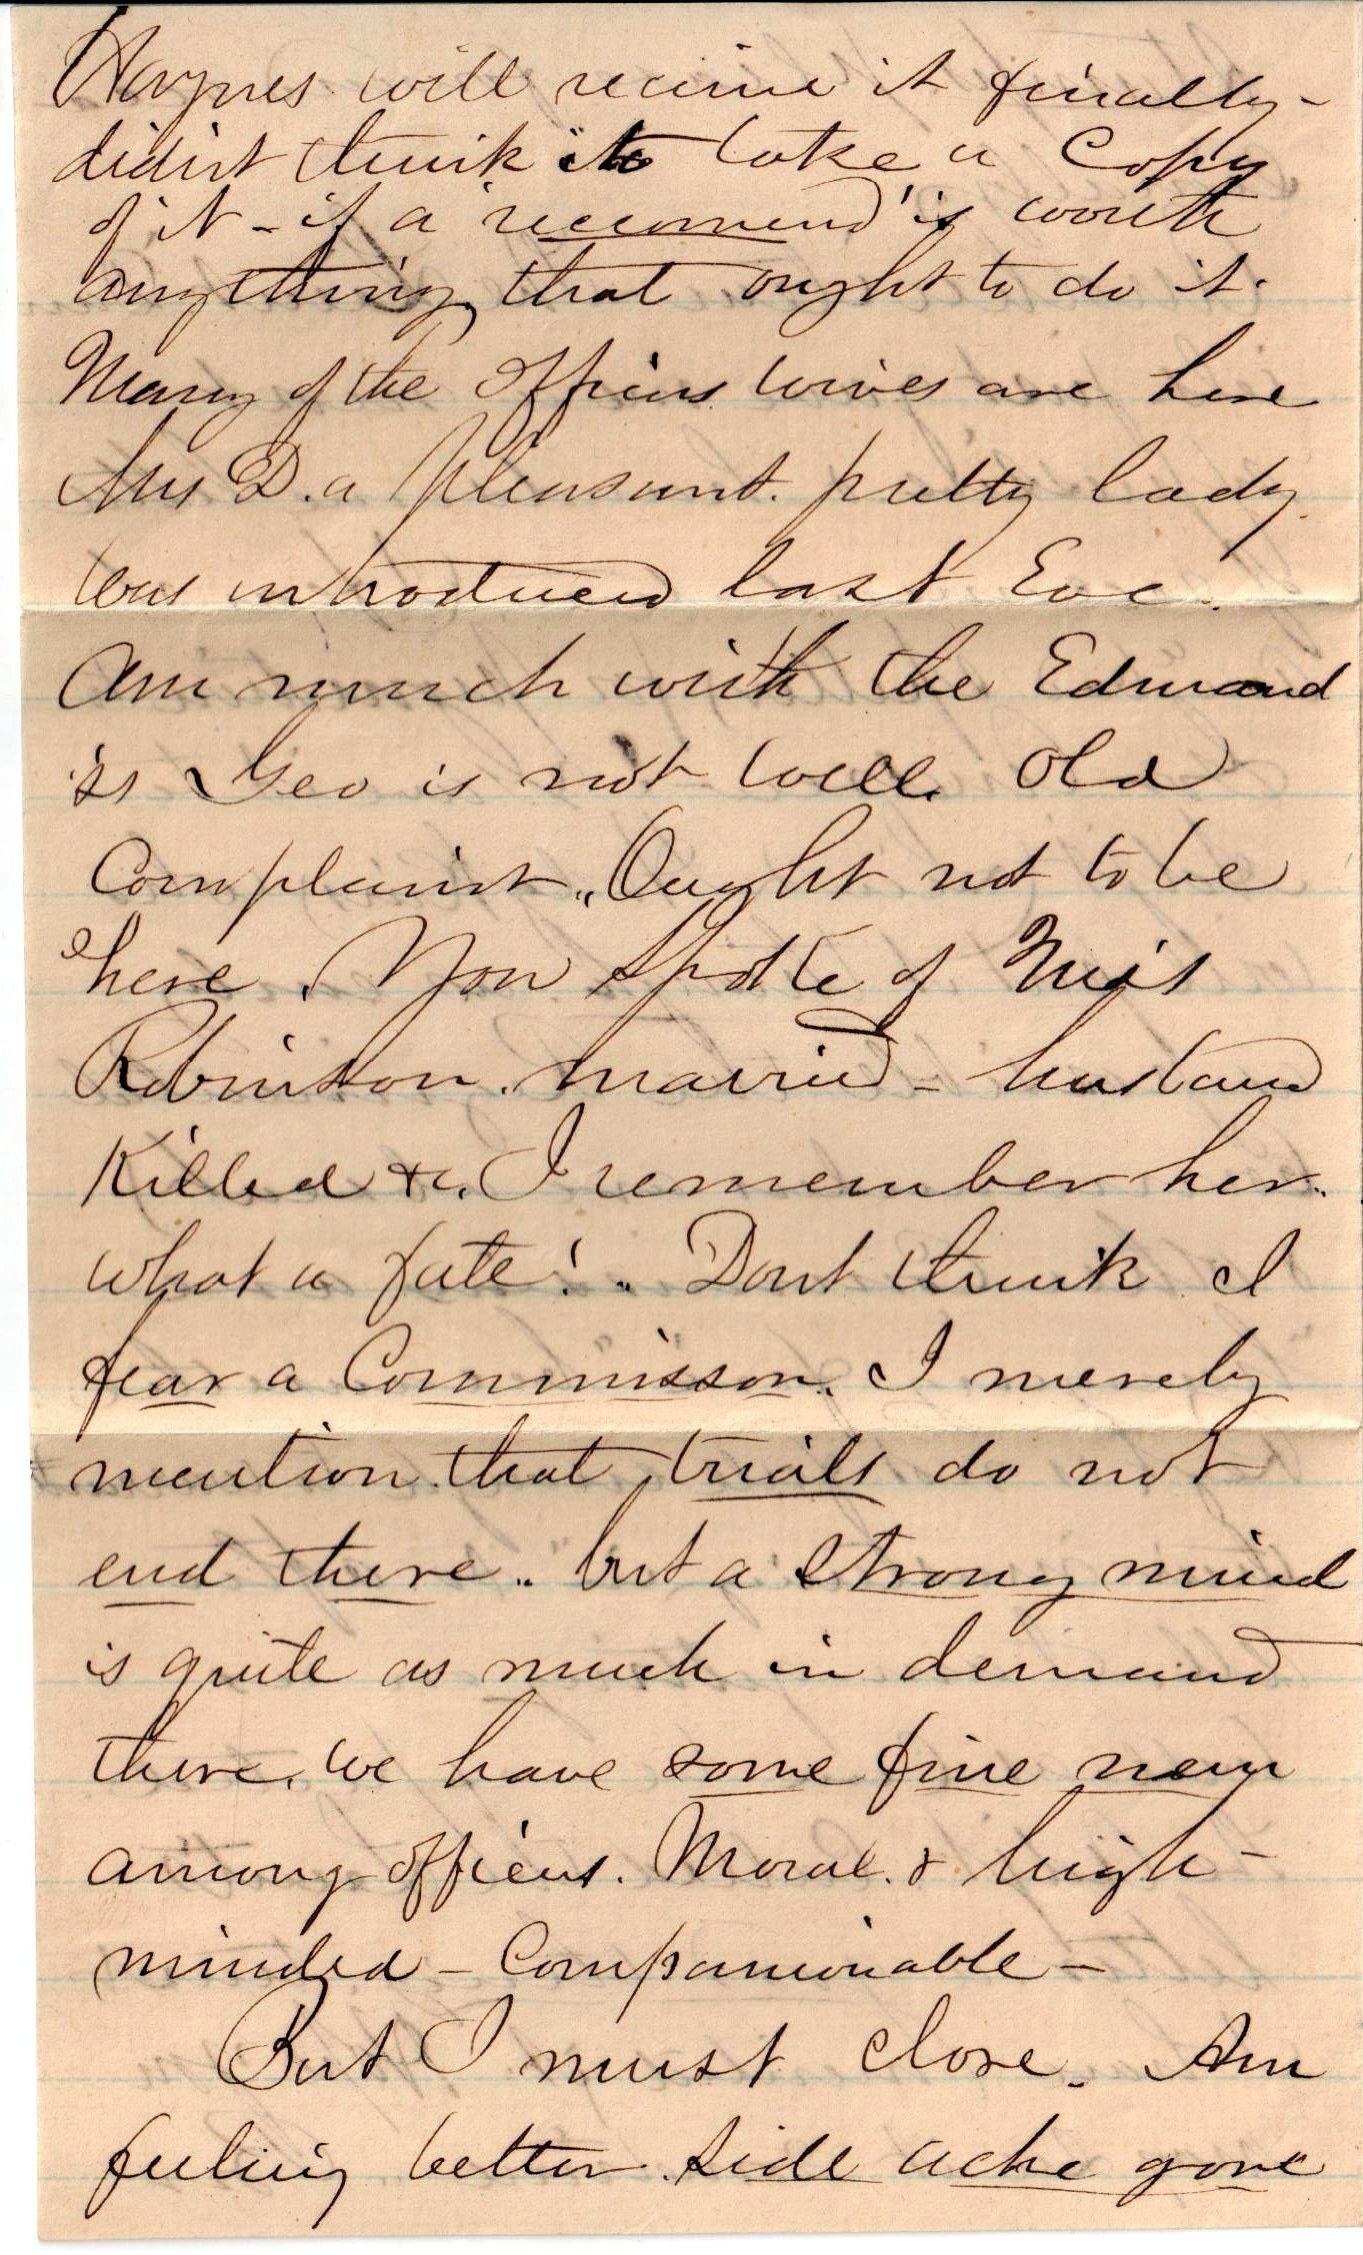 Haynes will recieve it finally -
didn't think to take a Copy
of it - if a 'recomend' is worth
anything, that ought to do it.
Many of the Officers wives are here
Mrs D. a pleasant. pretty lady.
was introduced last Eve.
Am much with the Edmand
's Geo is not well. Old
Complaint. Ought not to be
here. You spoke of Miss
Robinson. married - husband
Killed &c. I remember her.
what a fate! Dont think I
fear a Commisson. I merely
mention that trials do not
end there.. but a strong mind
is quite as much in demand
there. We have some fine men
among officers. Moral. & high -
minded - Companionable -
But I must close. Am
feeling better. side ache gone